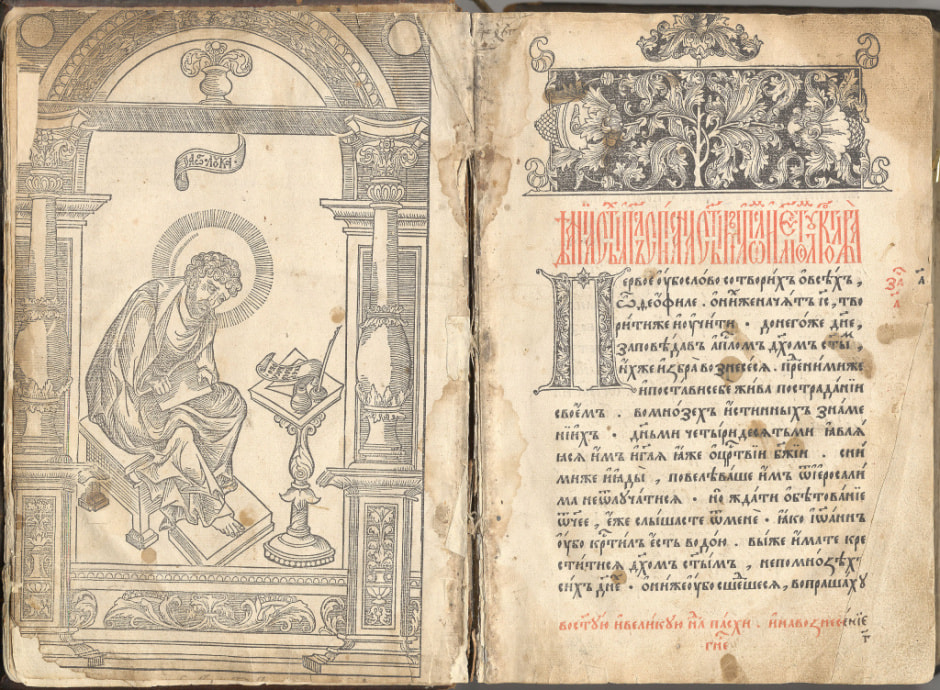 лꙋка
Первое ᲂу҆бо слово сотворихъ ѡ҆ всѣхъ,
ѽ ѳеофиле . ѻ҆ниже начѧтъ і҆с҃, тво
рити же и҆ ᲂу҆чити . донегоже дн҃е,
заповѣдавъ а҆пⷭ҇ломъ дх҃омъ ст҃ыⷨ ,
и҆хже и҆збра вознесесѧ . преⷣ ними же
и҆ постави себе жива по страданїи
своемъ . во мнозехъ и҆стинныхъ знаме
нїихъ . дн҃ьми четыридесѧтьми ꙗ҆влѧ
ꙗсѧ и҆мъ и҆ гл҃ѧ ꙗ҆же ѡ҆ црⷭ҇твїи бж҃їи . сни
миже и҆ ꙗ҆ды , повелѣваше и҆мъ ѿ і҆еросали
ма не ѿлꙋчатисѧ . но ждати ѡ҆бѣтованїе
ѿч҃ее , є҆же слышасте ѿ мене . ꙗ҆ко і҆ѡ҆аннъ
ᲂу҆бо крⷭ҇тилъ є҆сть водою . вы же и҆мате кре
ститисѧ дх҃омъ ст҃ымъ , не по мнозѣхъ
сихъ дн҃е . ѻ҆ни же ᲂу҆бо сшеⷣшесѧ, вопрашахꙋ
во ст҃ꙋю и҆ великꙋю нⷣлю пасхи . и҆ на вознесенїе
гⷭ҇не